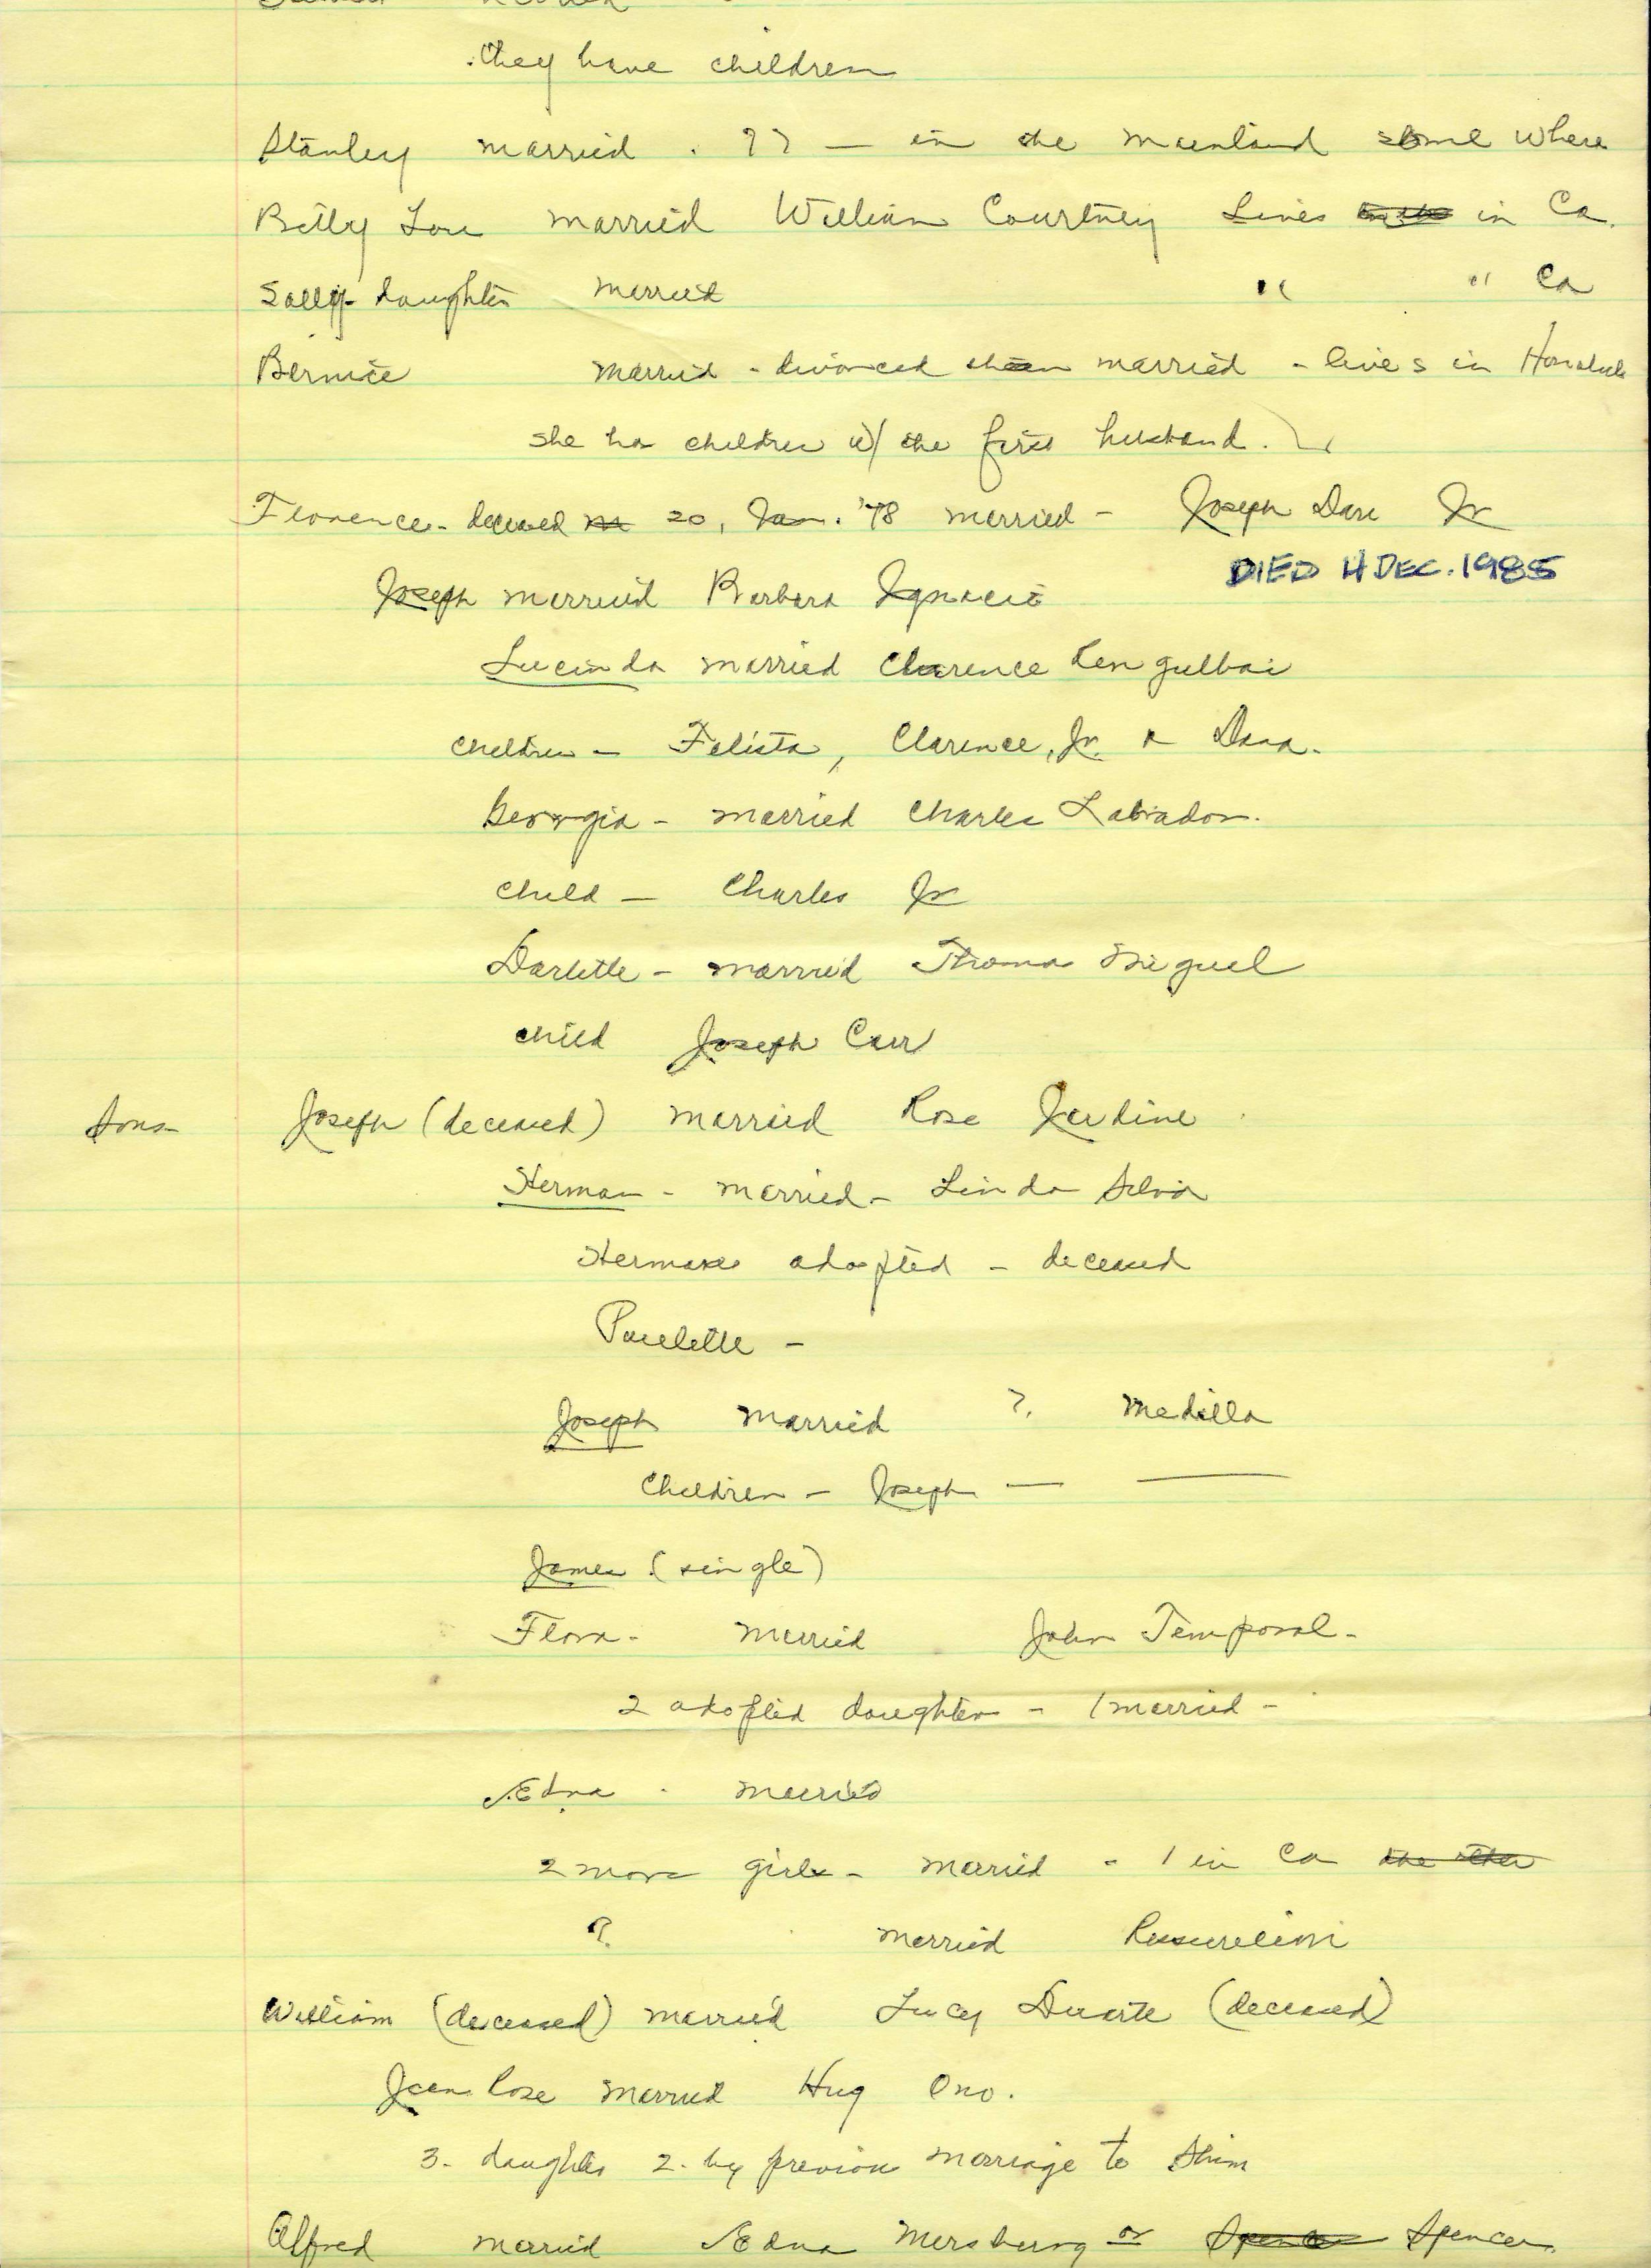 they have children
Stanley married . ?? — in the mainland some where
Betty Lou married William Courtney Lives in Ca.
Sally - daughter married " " Ca
Bernice married - divorced then married - lives in Honolulu
she has children w/ the first husband.
Florence - deceased 20, Jan. '78 married - Joseph Dare Jr
DIED 4 DEC. 1985
Joseph married Barbara Ignacio
Lucinda married Clarence Rengulbai
children - Felista, Clarence, Jr. & Dana.
Georgia - married Charles Labrador.
child - Charles Jr
Darlette - married Thomas Miguel
child Joseph Carr
Sons - Joseph (deceased) married Rose Jardine
Herman - married - Linda Silva
adopted - deceased
Paulette -
Joseph married ?. Medilla
Children - Joseph — —
James (single)
Flora - married John Temporal -
2 adopted daughters - 1 married -
Edna . married
2 more girls - married - 1 in Ca the other
? married
William (deceased) married Lucy Duarte (deceased)
Jean Rose married Hug Ono.
3 - daughters 2 - by previous marriage to Shim
Alfred married Edna Mersburg or Spencer Spencer